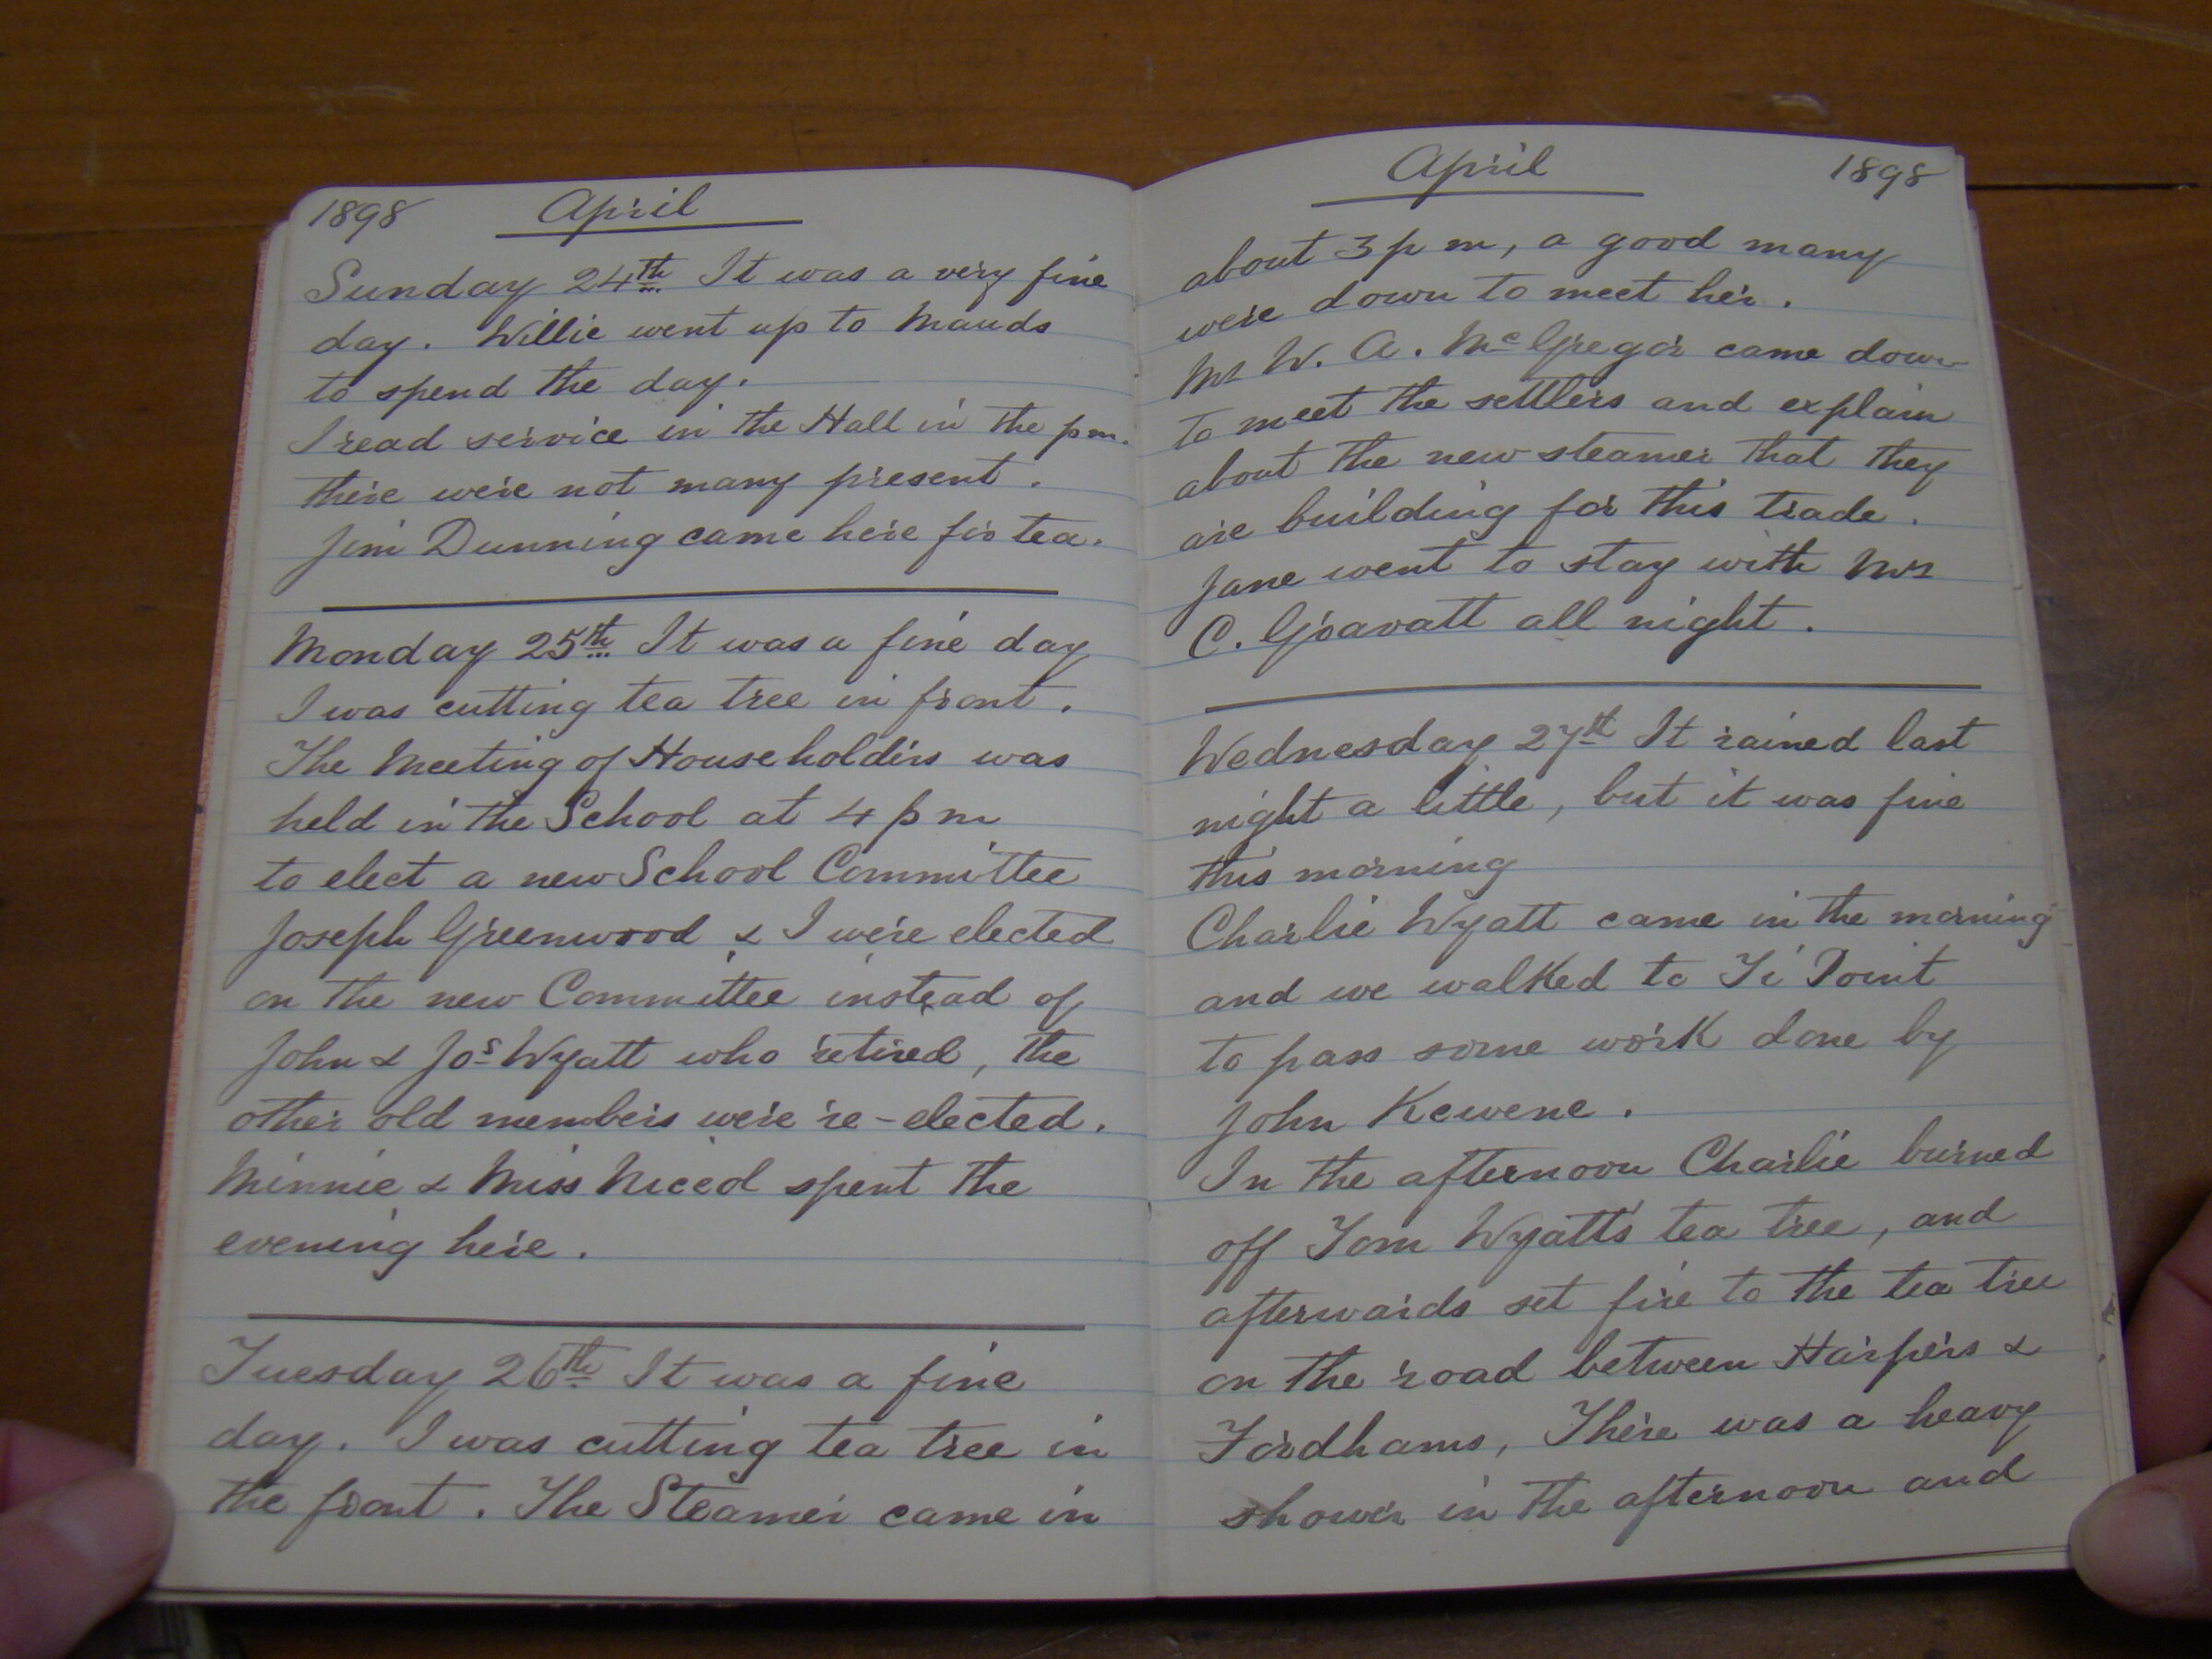 1898 April
Sunday 24th It was a very fine
day. Willie went up to Mauds
to spend the day.
I read service in the Hall in the pm.
there were not many present.
Jim Dunning came here for tea.
Monday 25th It was a fine day
I was cutting tea tree in front.
The Meeting of Householders was
held in the School at 4 p m
to elect a new School Committee
Joseph Greenwood & I were elected
on the new Committee instead of
John & Jos Wyatt who retired, the
other old members were re-elected.
Minnie & Miss Nicol spent the
evening here.
Tuesday 26th It was a fine
day. I was cutting tea tree in
the front. The Steamer came in
April 1898
about 3 p m, a good many
were down to meet her.
Mr W. A. McGregor came down
to meet the settlers and explain
about the new steamer that they
are building for this trade.
Jane went to stay with Mrs
C. Gravatt all night.
Wednesday 27th It rained last
night a little, but it was fine
this morning
Charlie Wyatt came in the morning
and we walked to Ti Point
to pass some work done by
John Kewene.
In the afternoon Charlie burned
off Tom Wyatt's tea tree, and
afterwards set fire to the tea tree
on the road between Harpers &
Fordhams, There was a heavy
shower in the afternoon and